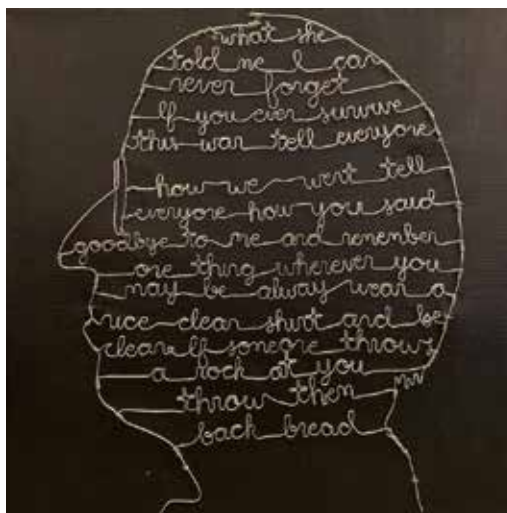 what she
told me I can
never forget
If you ever survive
this war tell everyone
how we went tell
everyone how you said
goodbye to me and remember
one thing wherever you
may be always wear a
nice clean shirt and be
clean If someone throws
a rock at you
throw them
back bread